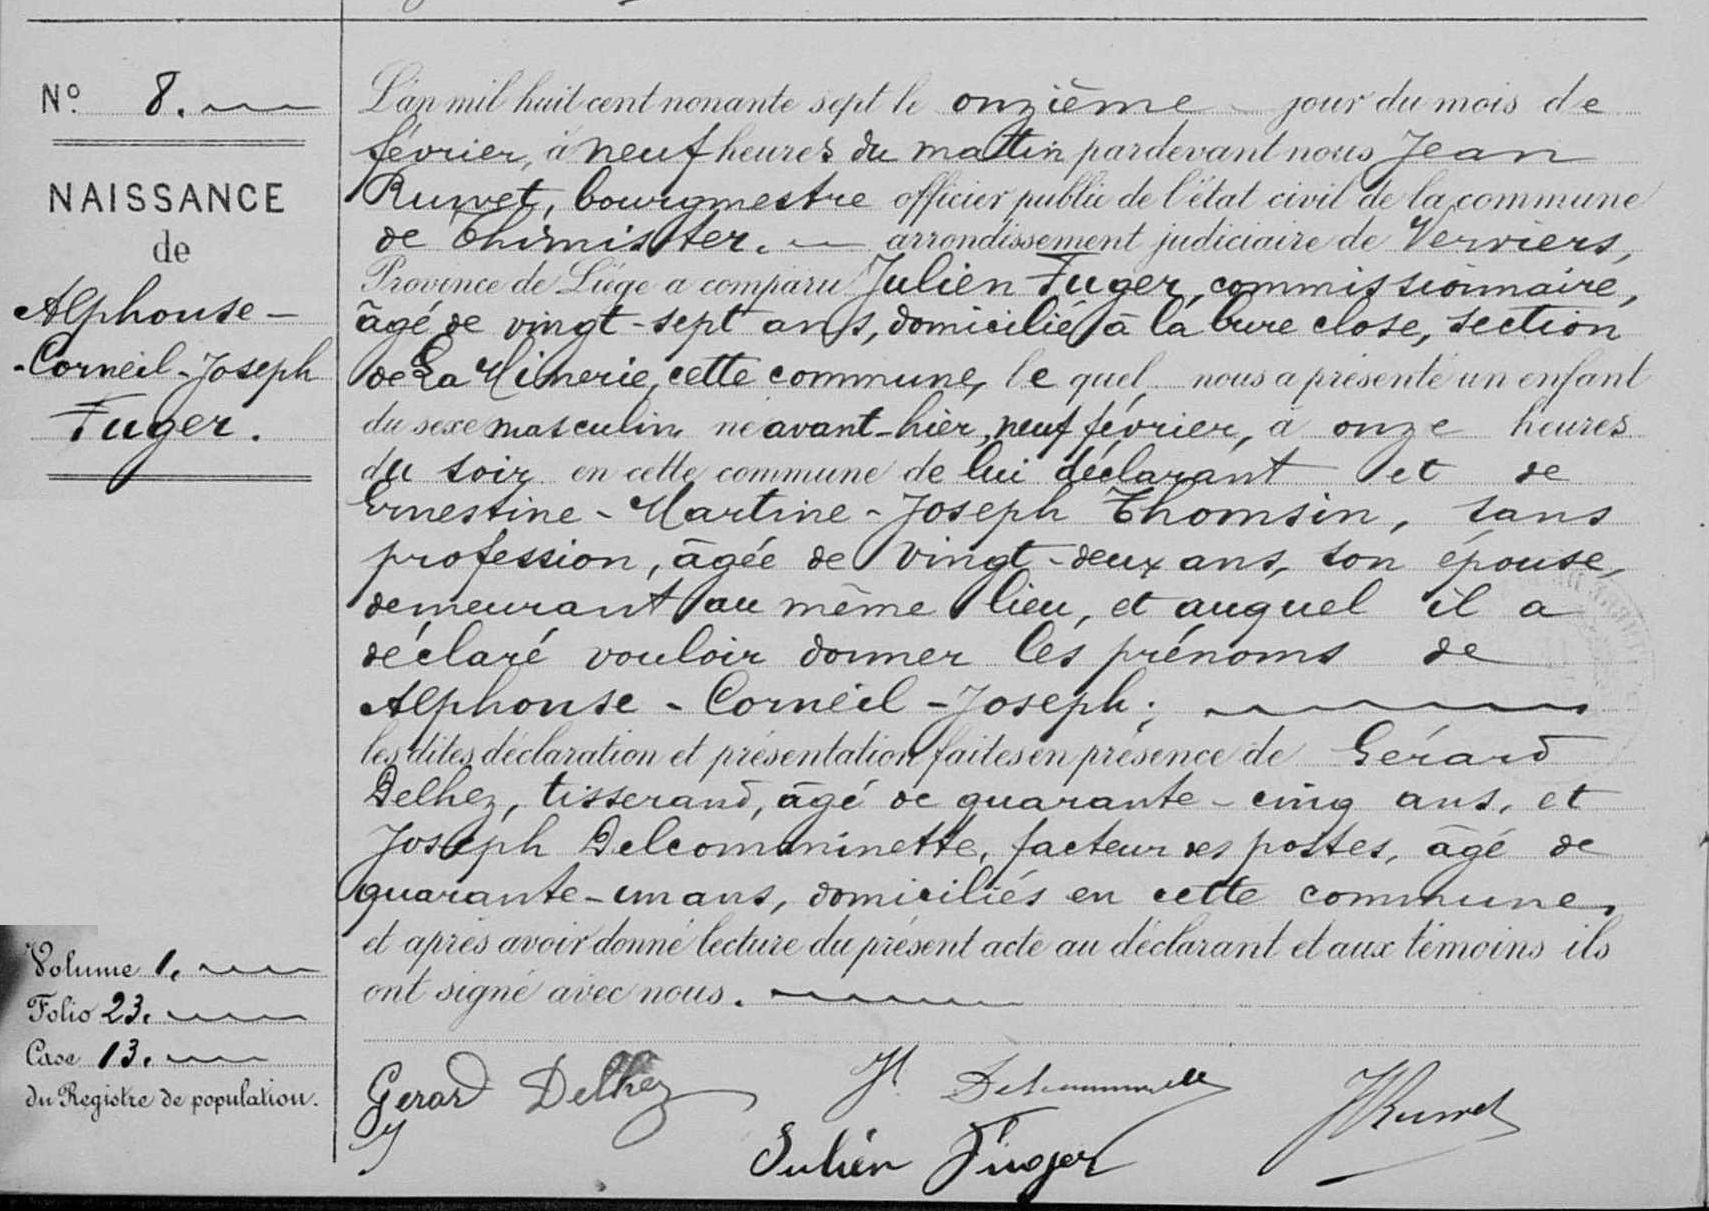 N° 8.
NAISSANCE
de
Alphonse -
- Corneil - Joseph
Fuger.
L'an mil huit cent nonante sept le onzième jour du mois de
février, à neuf heures du matin pardevant nous Jean
Ruwet, bourgmestre officier public de l'état civil de la commune
de Thimister. arrondissement judiciaire de Verviers,
Province de Liége a comparu Julien Fuger, commissionnaire,
âgé de vingt-sept ans, domicilié à la bure close, section
de La Minerie, cette commune, le quel nous a présenté un enfant
du sexe masculin né avant-hier, neuf février, à onze heures
du soir en cette commune de lui déclarant et de
Ernestine - Martine - Joseph Thomsin, sans
profession, âgée de vingt-deux ans, son épouse,
demeurant au même lieu, et auquel il a
déclaré vouloir donner les prénoms de
Alphonse - Corneil - Joseph;
les dites déclaration et présentation faites en présence de Gérard
Delhez, tisserand, âgé de quarante-cinq ans, et
Joseph Delcomminette, facteur des postes, âgé de
quarante-un ans, domiciliés en cette commune,
et après avoir donné lecture du présent acte au déclarant et aux témoins ils
ont signé avec nous.
Volume 1.
Folio 23.
Case 13.
du Registre de population.
Gerard Delhez
JRuwet
Julien Fuger